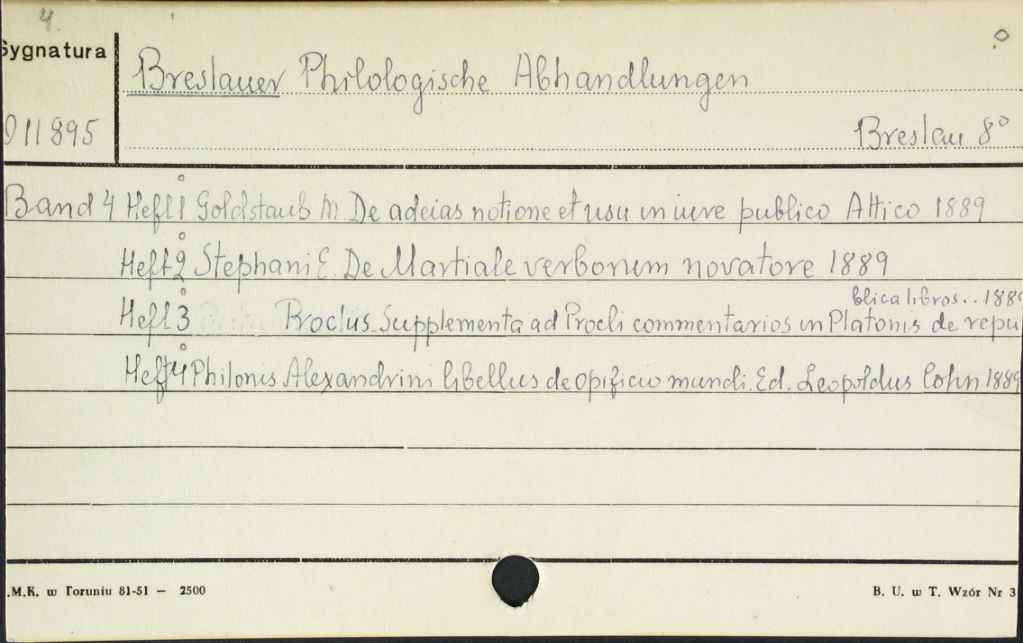 4.
Sygnatura
Breslauer Philologische Abhandlungen
011895
Breslau 8°
Band 4 Heft 1 Goldstaub M De adeias notione et usu in iure publico Attico 1889
Heft 2 Stephani E. De Martiale verborum novatore 1889
blica libros.. 1889
Heft 3 Proclus Supplementa ad Procli commentarios in Platonis de repu
Heft 4 Philonis Alexandrini libellus de opificio mundi. Ed. Leopoldus Cohn 1889
.M.K. w Toruniu 81-51 — 2500
B. U. w T. Wzór Nr 3